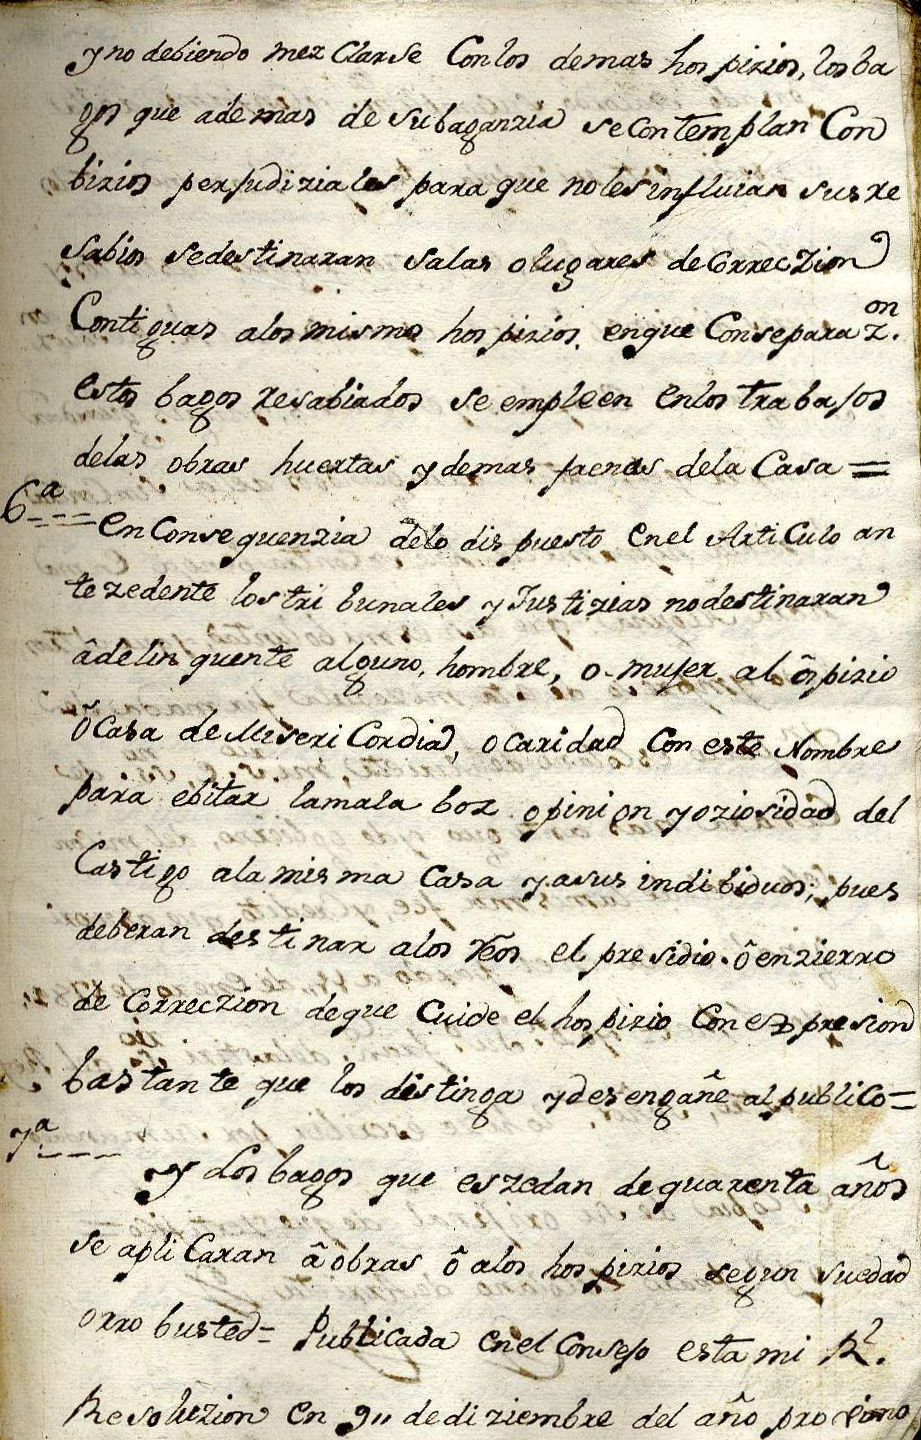 y no debiendo mezclarse con los demas hospizios, los ba
gos que ademas de su baganzia se contemplan con
bizios perjudiziales para que no les influian sus re
sabios se destinaran salas o lugares de correczion
contiguas a los mismos hospizios, en que con separaz.on
estos bagos resabiados se empleen en los trabajos
de las obras huertas y demas faenas de la casa =
6ª --- en consequenzia de lo dispuesto en el Articulo an
tezedente los tribunales y Justizias no destinaran
â delinquente alguno, hombre, o mujer al ôspizio
ô casa de Misericordia, o caridad con este Nombre
para ebitar la mala boz opinion y oziosidad del
castigo a la misma casa y a sus indibiduos; pues
deberan destinar a los rêos el presidio ô enzierro
de correczion de que cuide el hospizio con ezpresion
bastante que los distinga y desengañe al publico =
7ª --- Y Los bagos que eszedan de quarenta años
se aplicaran â obras ô a los hospizios segun su edad
o rrobusted = Publicada en el Consejo esta mi R.l
Resoluzion en 9,, de diziembre del año procsimo